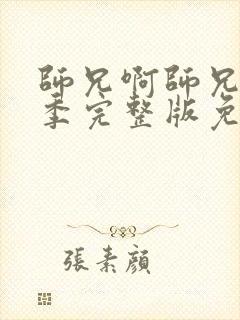 師兄啊師兄
季完整版免
張素顔